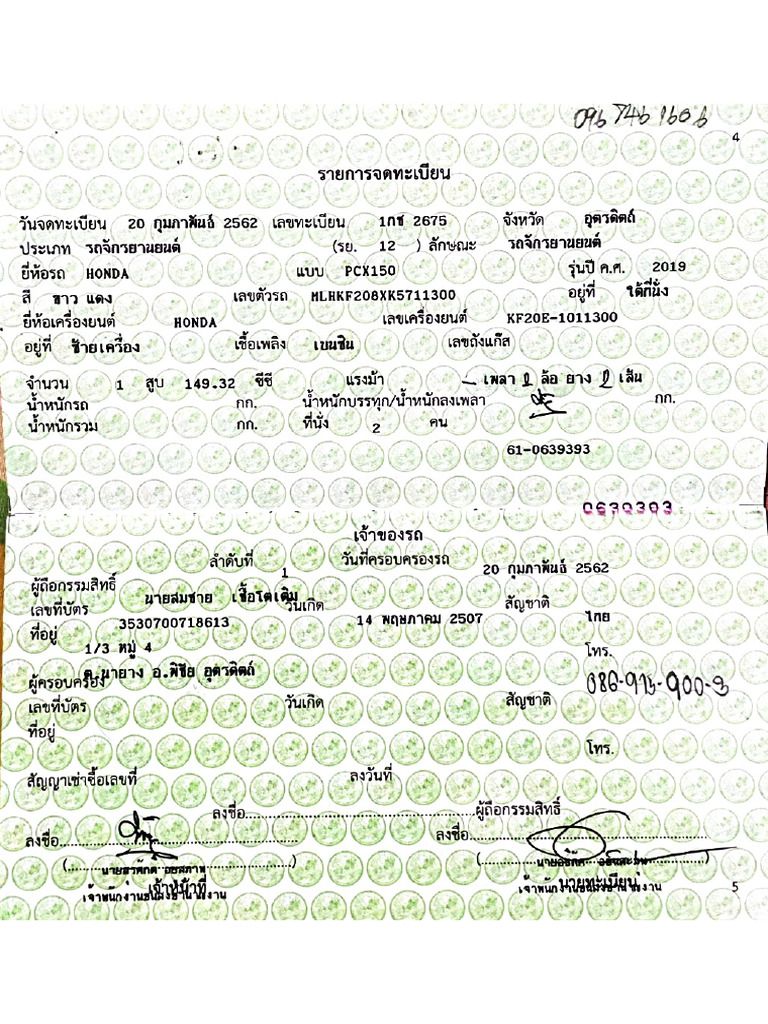 096 746 1606
4
รายการจดทะเบียน
วันจดทะเบียน 20 กุมภาพันธ์ 2562 เลขทะเบียน 1กช 2675 จังหวัด อุตรดิตถ์
ประเภท รถจักรยานยนต์ (รย. 12 ) ลักษณะ รถจักรยานยนต์
ยี่ห้อรถ HONDA แบบ PCX150 รุ่นปี ค.ศ. 2019
สี ขาว แดง เลขตัวรถ MLHKF208XK5711300 อยู่ที่ ใต้ที่นั่ง
ยี่ห้อเครื่องยนต์ HONDA เลขเครื่องยนต์ KF20E-1011300
อยู่ที่ ซ้ายเครื่อง เชื้อเพลิง เบนซิน เลขถังแก๊ส
จำนวน 1 สูบ 149.32 ซีซี แรงม้า - เพลา 2 ล้อ ยาง 2 เส้น
น้ำหนักรถ กก. น้ำหนักบรรทุก/น้ำหนักลงเพลา กก.
น้ำหนักรวม กก. ที่นั่ง 2 คน
61-0639393
0639393
เจ้าของรถ
ลำดับที่ 1 วันที่ครอบครองรถ 20 กุมภาพันธ์ 2562
ผู้ถือกรรมสิทธิ์ นายสมชาย เชื้อโตเติม
เลขที่บัตร 3530700718613 วันเกิด 14 พฤษภาคม 2507 สัญชาติ ไทย
ที่อยู่ 1/3 หมู่ 4 โทร.
ต.นายาง อ.พิชัย อุตรดิตถ์
ผู้ครอบครอง 086-915-900-3
เลขที่บัตร วันเกิด สัญชาติ
ที่อยู่ โทร.
สัญญาเช่าซื้อเลขที่ ลงวันที่
ลงชื่อ ผู้ถือกรรมสิทธิ์
ลงชื่อ ลงชื่อ
เจ้าหน้าที่ นายทะเบียน
5